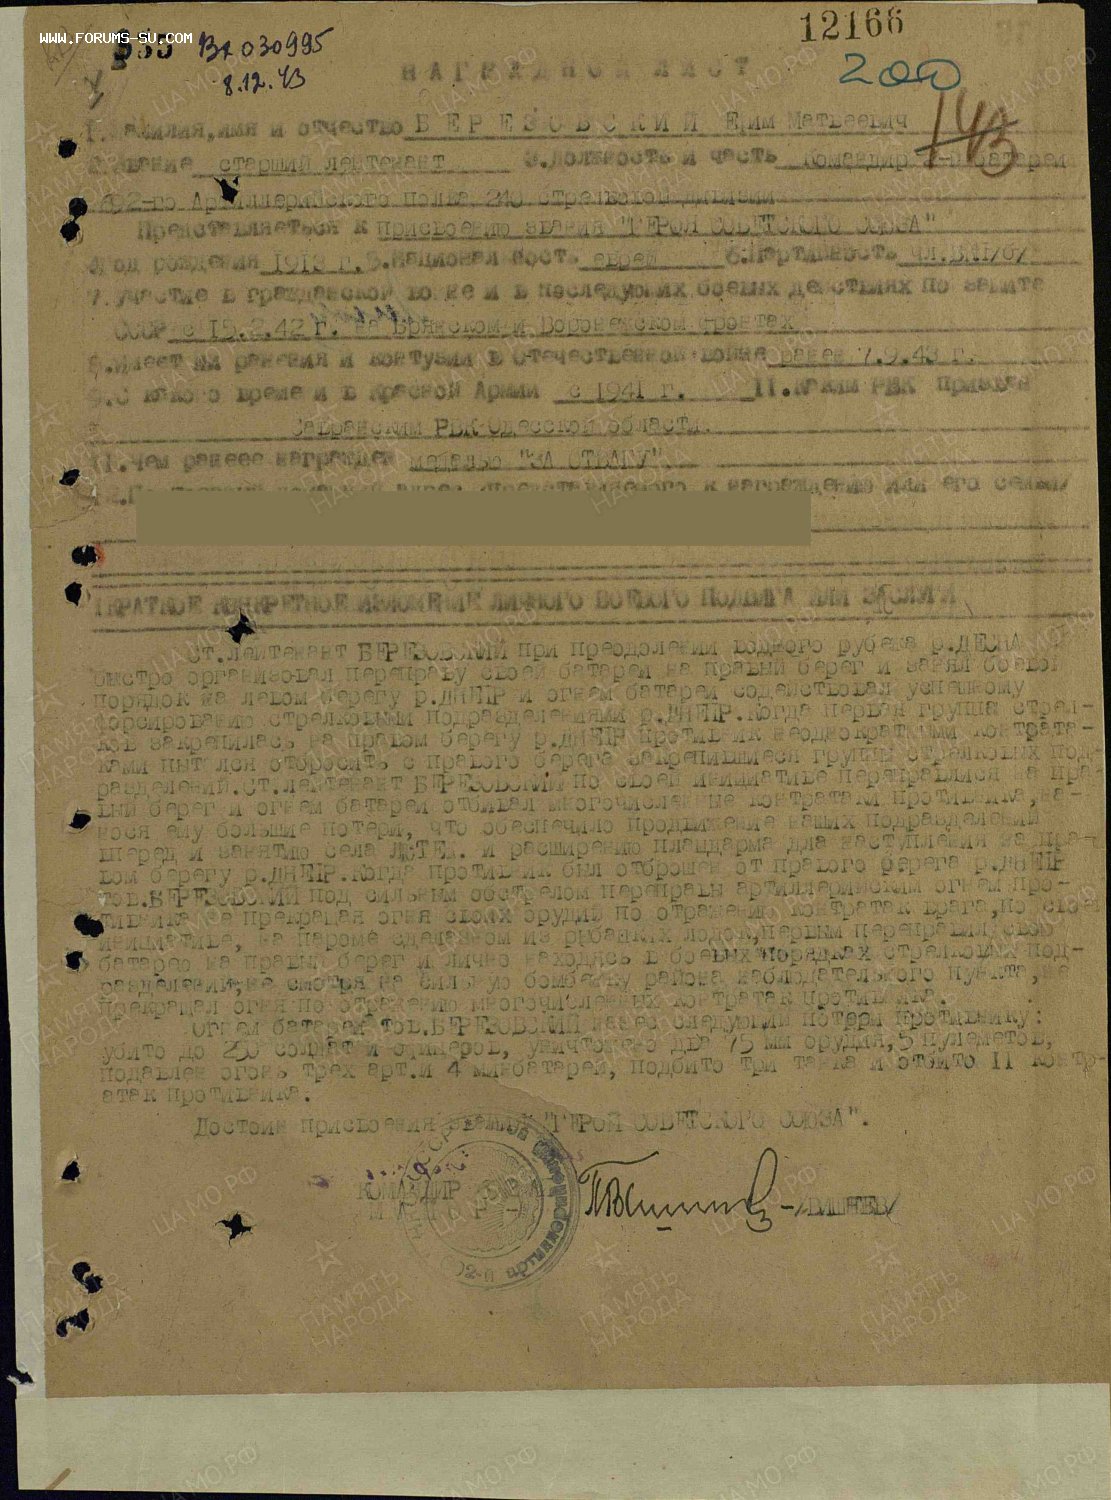 WWW.FORUMS-SU.COM
12166
Вх 030995
8.12.43
200
НАГРАДНОЙ ЛИСТ
1. Фамилия, имя и отчество БЕРЕЗОВСКИЙ Ефим Матвеевич
2. Звание старший лейтенант 3. Должность и часть Командир батареи
Артиллерийского полка, 240 стрелковой дивизии
Представляеться к присвоению звания "ГЕРОЯ СОВЕТСКОГО СОЮЗА"
4. Год рождения 1913 г. 5. Национальность еврей 6. Партийность чл. ВКП/б/
7. Участие в гражданской войне и в последующих боевых действиях по защите
СССР с 15.2.42 г. на Брянском и Воронежском фронтах
8. Имеет ли ранения и контузии в Отечественной войне ранен 7.9.43 г.
9. С какого времени в Красной Армии с 1941 г. II. Каким РВК призван
Савранским РВК Одесской области.
11. Чем ранее награжден медалью "ЗА ОТВАГУ"
представляемого к награждению или его семьи
КРАТКОЕ КОНКРЕТНОЕ ИЗЛОЖЕНИЕ ЛИЧНОГО БОЕВОГО ПОДВИГА ИЛИ ЗАСЛУГИ
Ст.лейтенант БЕРЕЗОВСКИЙ при преодолении водного рубежа р.ДЕСНА
быстро организовал переправу своей батареи на правый берег и занял боевой
порядок на левом берегу р.ДНЕПР и огнем батареи содействовал успешному
форсированию стрелковыми подразделениями р.ДНЕПР. Когда первая группа стрел-
ков закрепилась на правом берегу р.ДНЕПР противник неоднократными контрата-
ками пытался отбросить с правого берега закрепившиеся группы стрелковых под-
разделений. Ст.лейтенант БЕРЕЗОВСКИЙ по своей инициативе переправился на пра-
вый берег и огнем батареи отбивал многочисленные контратаки противника, на-
нося ему большие потери, что обеспечило продвижение наших подразделений
вперед и занятию села ЛЮТЕЖ. и расширению плацдарма для наступления на пра-
вом берегу р.ДНЕПР. Когда противник был отброшен от правого берега р.ДНЕПР
тов.БЕРЕЗОВСКИЙ под сильным обстрелом переправы артиллерийским огнем про-
тивника не прекращая огня своих орудий по отражению контратак врага, по своей
инициативе, на пароме сделанном из рыбацких лодок, первым переправил свою
батарею на правый берег и лично находясь в боевых порядках стрелковых под-
разделений, не смотря на сильную бомбежку района наблюдательного пункта, не
прекращал огня по отражению многочисленных контратак противника.
Огнем батареи тов.БЕРЕЗОВСКИЙ нанес следующие потери противнику:
убито до 250 солдат и офицеров, уничтожено два 75 мм орудия, 5 пулеметов,
подавлен огонь трех арт. и 4 минбатарей, подбито три танка и отбито II контр-
атак противника.
Достоин присвоения звания "ГЕРОЙ СОВЕТСКОГО СОЮЗА".
КОМАНДИР
/ВИШНЕВ/